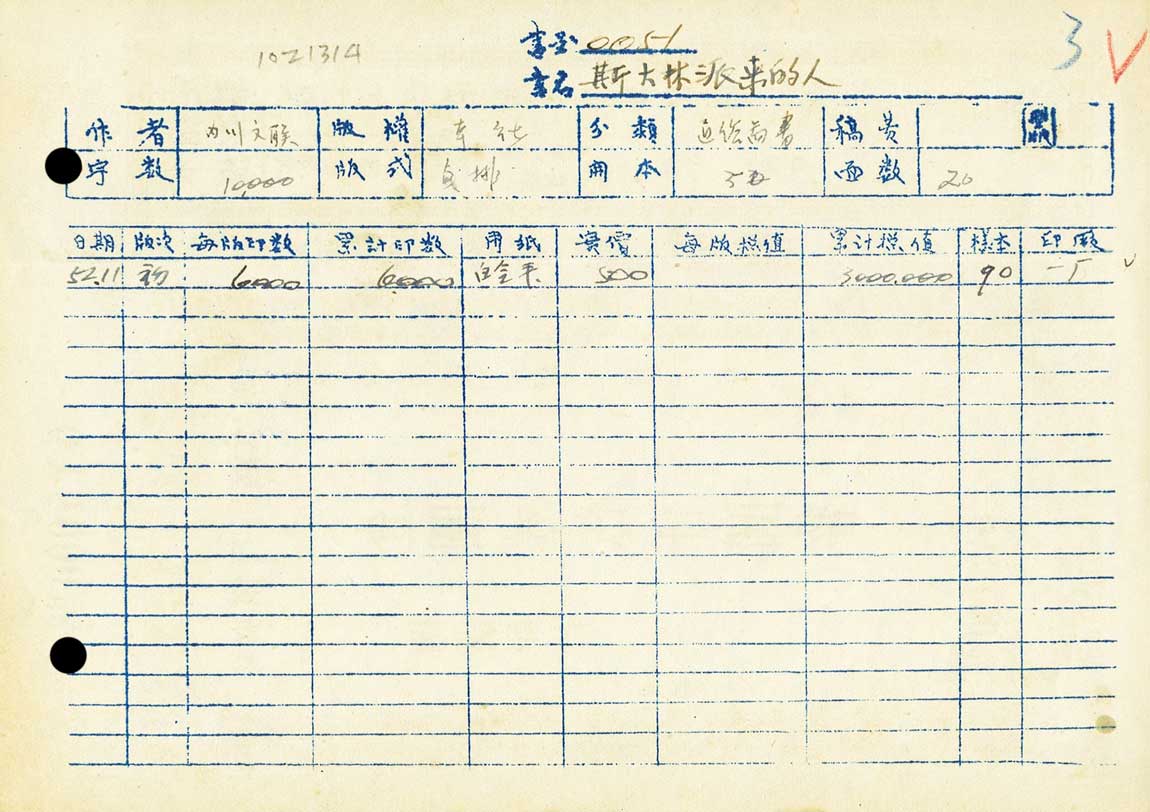 1021314
书号 0051
3
书名 斯大林派来的人
作者 川文联 版權 本社 分類 书 稿费
字数 10,000 版式 排 開本 面数 20
日期 版次 每版印数 累計印数 用紙 實價 每版標值 累計標值 樣本 印廠
52.11 初 6,000 6,000 500 3000,000 90 一厂